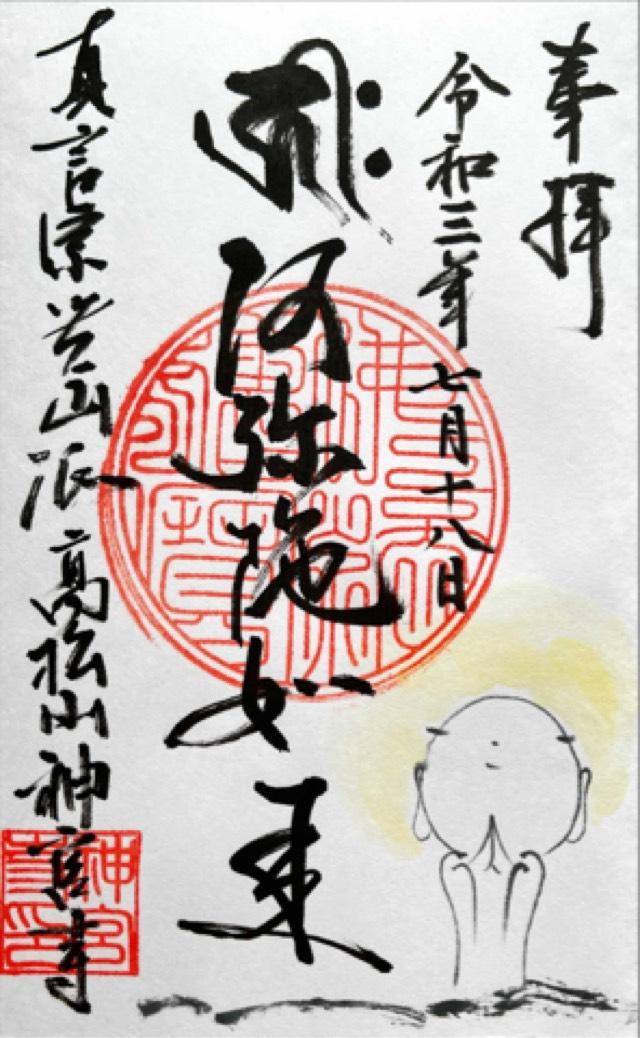 奉拝
令和三年七月十八日
𑖮𑖿𑖨𑖱𑖾
阿弥陀如来
真言宗当山派 高松山神宮寺
神宮寺印